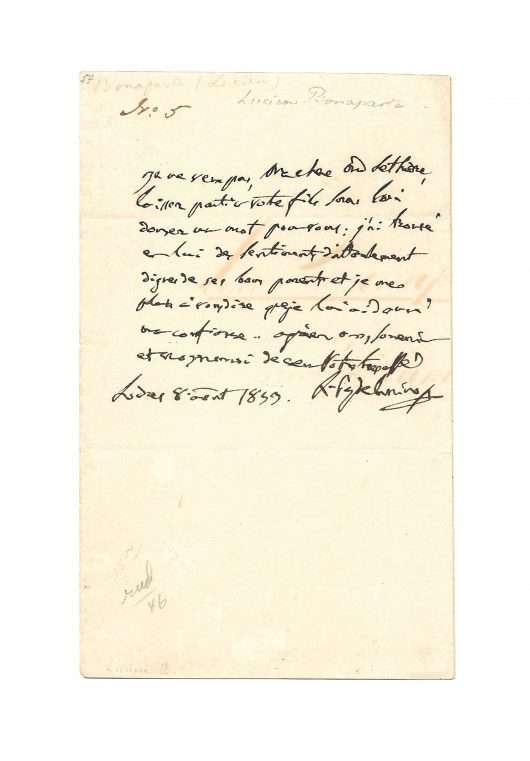 57
Bonaparte (Lucien)
Lucien Bonaparte.
No. 5
je ne veux pas, ma chere
laisser partir votre fils sans lui
donner un mot pour vous; j'ai trouvé
en lui des sentiments d'attachement
dignes de ses bons parents et je me
plais à vous dire que je lui ai donné
ma confiance .. agréez mon souvenir
et
Londres 8 août 1833.
46